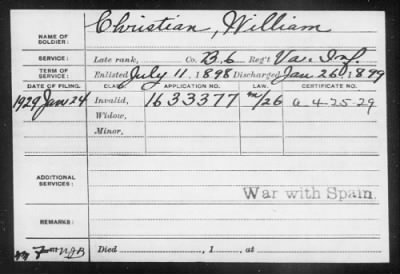 NAME OF SOLDIER: Christian, William
SERVICE: Late rank, Co. B. 6 Reg't Va. Inf.
TERM OF SERVICE: Enlisted July 11, 1898 Discharged Jan 26, 1899
DATE OF FILING. CLASS. APPLICATION NO. LAW. CERTIFICATE NO.
1929 Jan 24 Invalid, 1633377 m/26
Widow,
Minor,
ADDITIONAL SERVICES:
War with Spain.
REMARKS:
Died , 1 , at